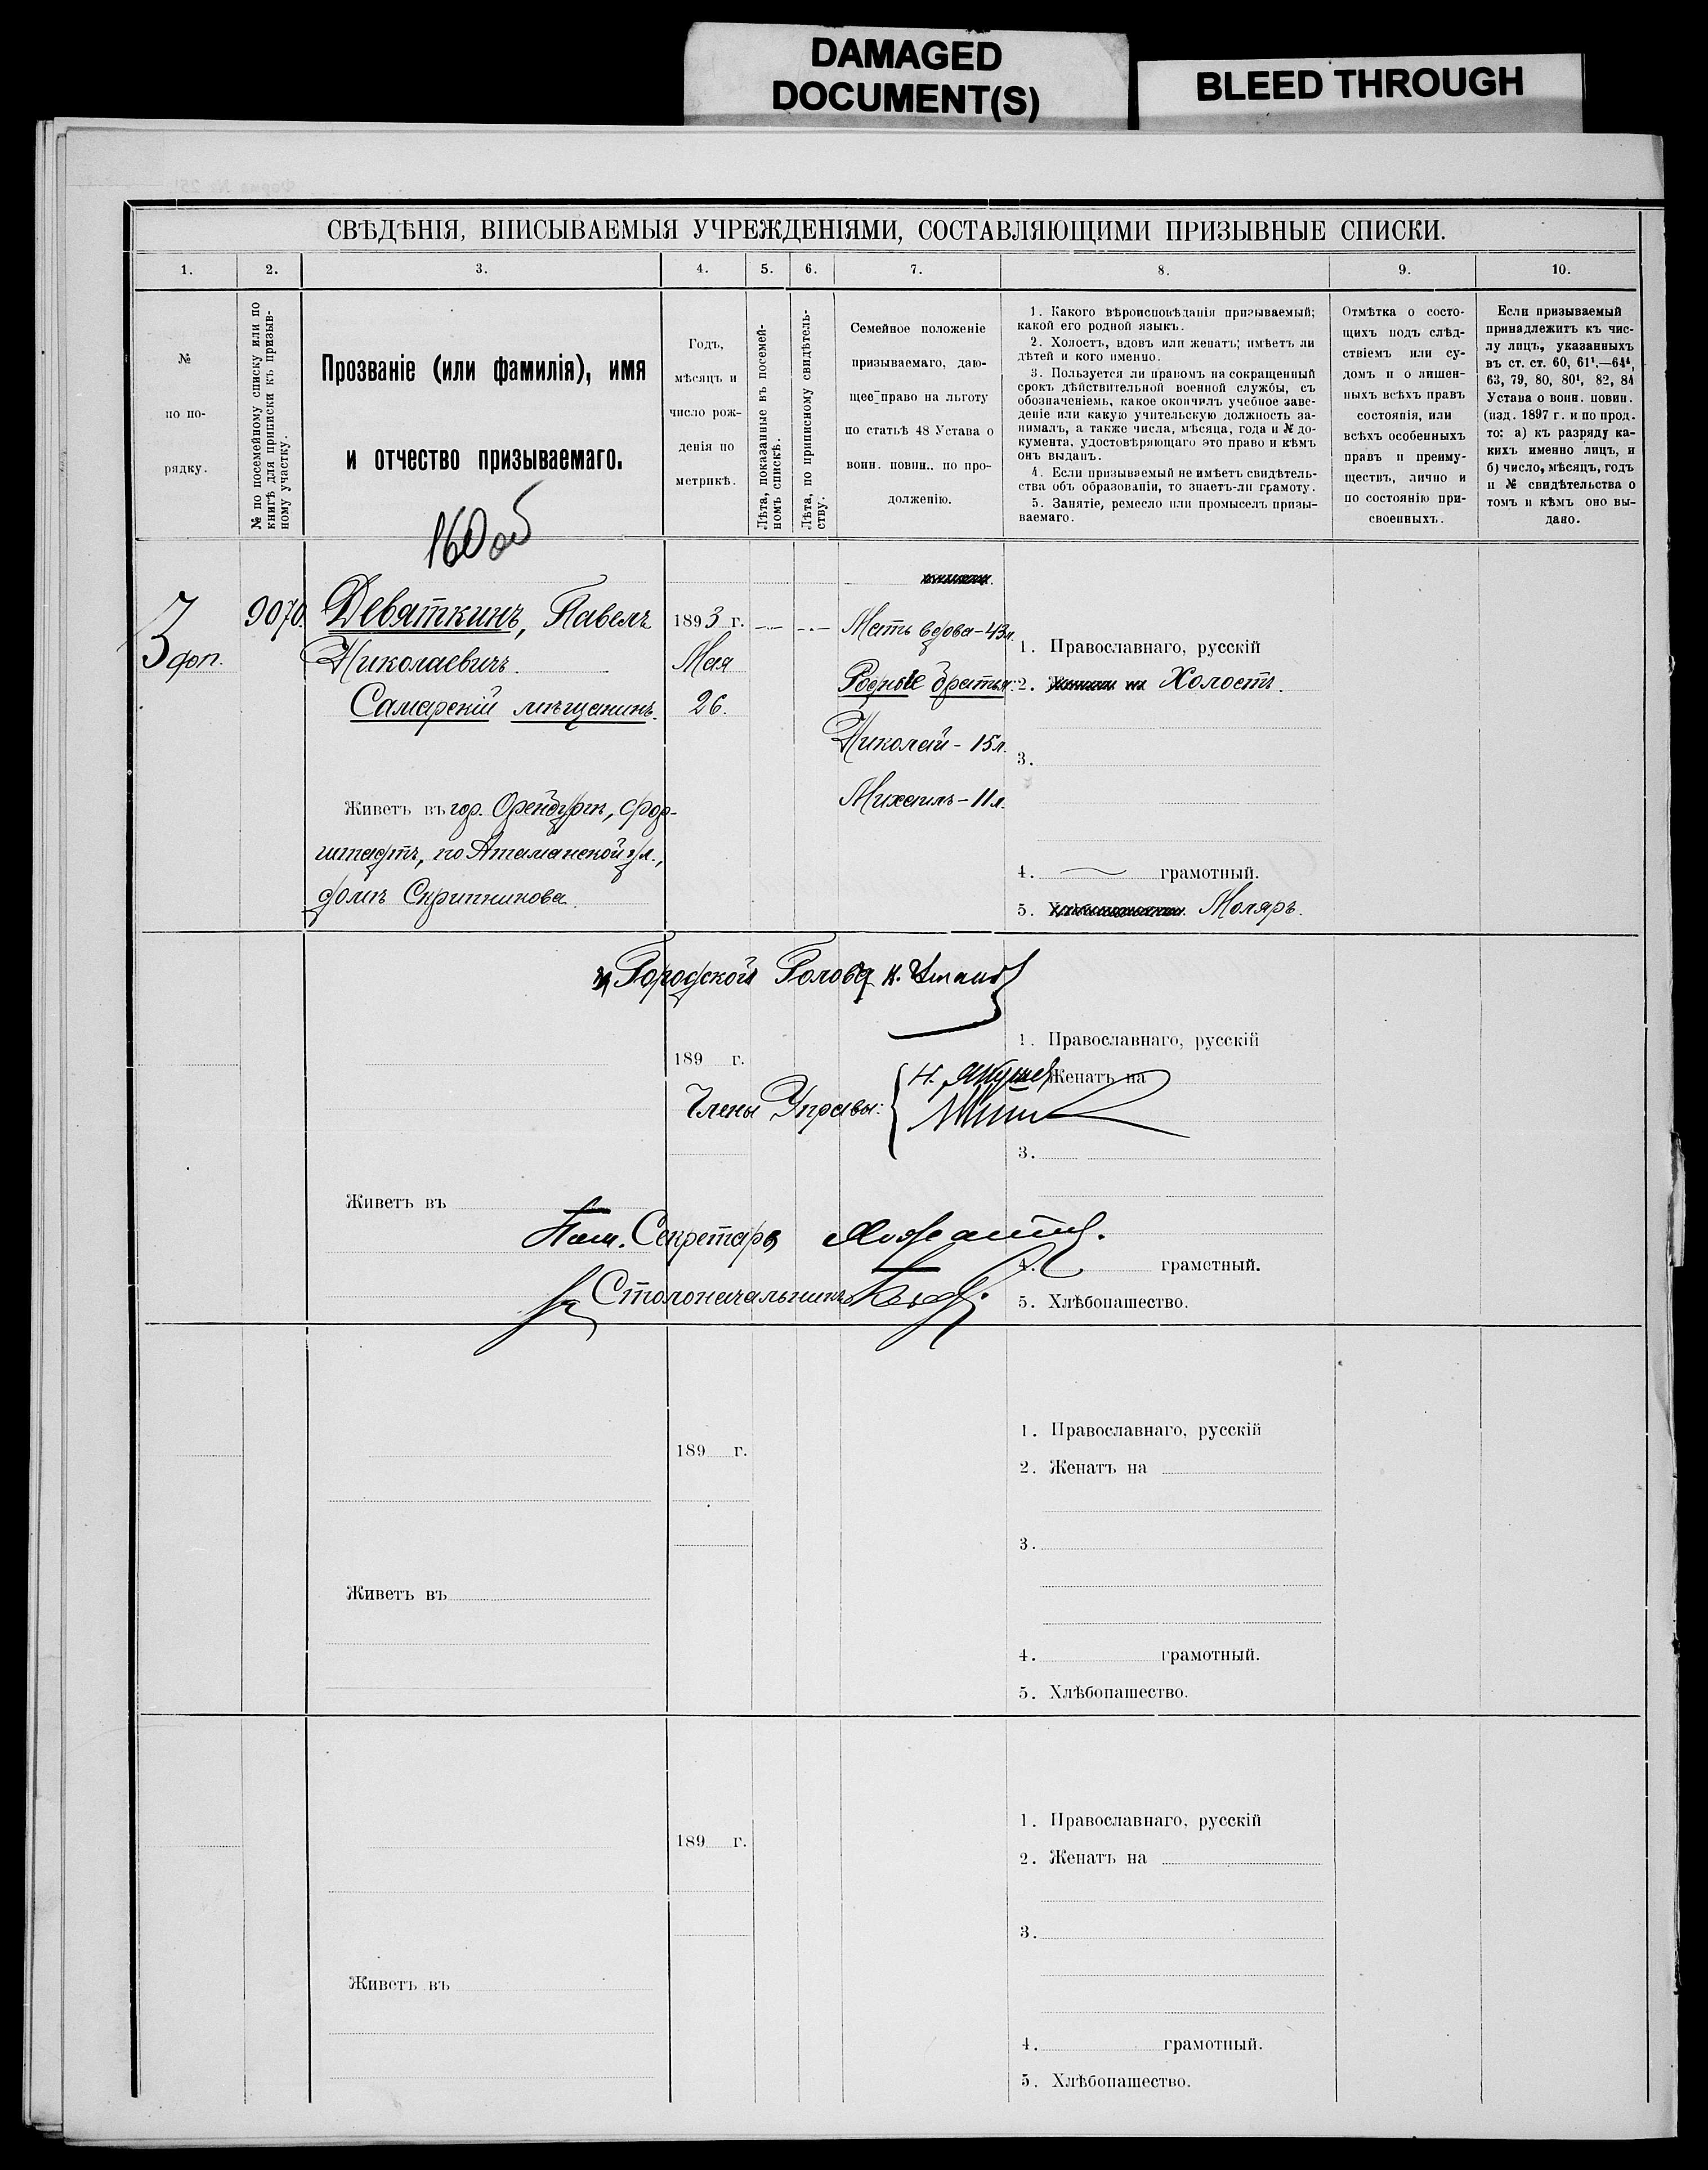 DAMAGED
DOCUMENT(S)
BLEED THROUGH
СВѢДѢНІЯ, ВПИСЫВАЕМЫЯ УЧРЕЖДЕНІЯМИ, СОСТАВЛЯЮЩИМИ ПРИЗЫВНЫЕ СПИСКИ.
1.
2.
3.
4.
5.
6.
7.
8.
9.
10.
№
по по-
рядку.
№ по посемейному списку или по
книгѣ для приписки къ призыв-
ному участку.
Прозваніе (или фамилія), имя
и отчество призываемаго.
Годъ,
мѣсяцъ и
число рож-
денія по
метрикѣ.
Лѣта, показанные въ посемей-
номъ спискѣ.
Лѣта, по приписному свидѣтель-
ству.
Семейное положеніе
призываемаго, даю-
щее право на льготу
по статьѣ 48 Устава о
воин. повин., по про-
долженію.
1. Какого вѣроисповѣданія призываемый;
какой его родной языкъ.
2. Холостъ, вдовъ или женатъ; имѣетъ ли
дѣтей и кого именно.
3. Пользуется ли правомъ на сокращенный
срокъ дѣйствительной военной службы, съ
обозначеніемъ, какое окончилъ учебное заве-
деніе или какую учительскую должность за-
нималъ, а также числа, мѣсяца, года и № до-
кумента, удостовѣряющаго это право и кѣмъ
онъ выданъ.
4. Если призываемый не имѣетъ свидѣтель-
ства объ образованіи, то знаетъ-ли грамоту.
5. Занятіе, ремесло или промыселъ призы-
ваемаго.
Отмѣтка о состо-
ящихъ подъ слѣд-
ствіемъ или су-
домъ и о лишен-
ныхъ всѣхъ правъ
состоянія, или
всѣхъ особенныхъ
правъ и преиму-
ществъ, лично и
по состоянію при-
своенныхъ.
Если призываемый
принадлежитъ къ чис-
лу лицъ, указанныхъ
въ ст. ст. 60, 61¹.—64⁴,
63, 79, 80, 80¹, 82, 84
Устава о воин. повин.
(изд. 1897 г. и по прод.
то: а) къ разряду ка-
кихъ именно лицъ, и
б) число, мѣсяцъ, годъ
и № свидѣтельства о
томъ и кѣмъ оно вы-
дано.
160 об
3 доп.
9070.
Девяткинъ, Павелъ
Николаевичъ.
Самарскій мѣщанинъ.
Живетъ въ гор. Оренбургѣ, фор-
штадтъ, по Атаманской ул.,
домъ Скрипникова.
1893 г.
Мая
26.
Мать вдова - 43 л.
Родные братья:
Николай - 15 л.
Михаилъ - 11 л.
1. Православнаго, русскій
2. Холостъ.
3.
4. грамотный.
5. Маляръ.
Городской Голова
189 г.
Члены Управы:
1. Православнаго, русскій
Женатъ на
3.
Живетъ въ
Пом. Секретаря
4. грамотный.
Столоначальникъ
5. Хлѣбопашество.
189 г.
1. Православнаго, русскій
2. Женатъ на
3.
Живетъ въ
4. грамотный.
5. Хлѣбопашество.
189 г.
1. Православнаго, русскій
2. Женатъ на
3.
Живетъ въ
4. грамотный.
5. Хлѣбопашество.